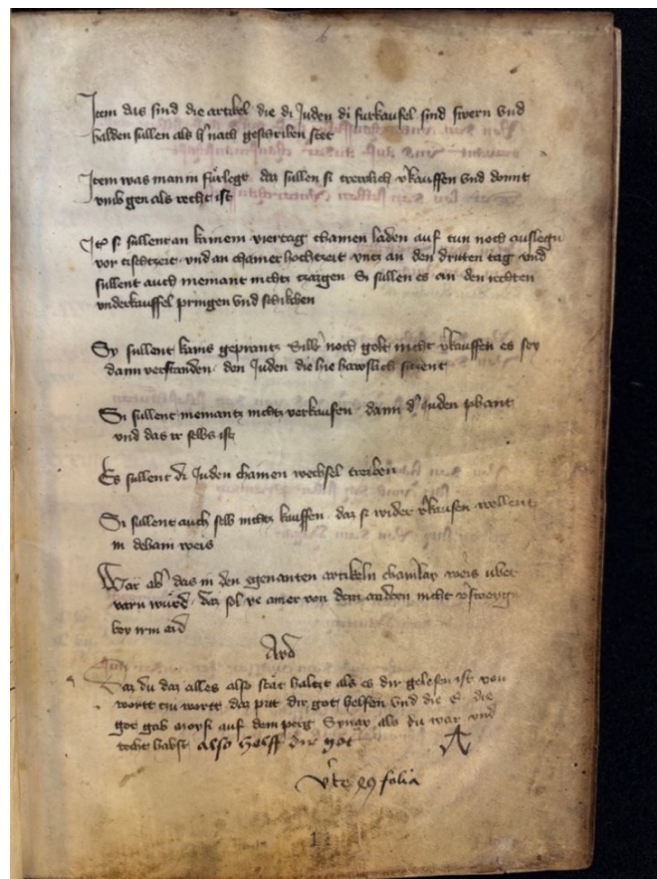 Item das sind die artikel die di Juden di furkaufel sind swern und
halden sullen als h'nach geschriben stet
Item was man in fürlegt daz sullen si trewlich v'kauffen und domit
umb gen als recht ist
Ite si sullent an kainem viertag chainen laden auf tun noch auslegen
vor tischtzeit und an chainer hochtzeit untz an den dritten tag und
sullent auch niemant nichtz tzaigen Si sullen es an den rechten
underkauffel pringen und schikchen
Sy sullent kains geprantz Silb' noch golt nicht v'kauffen es sey
dann verstanden den Juden die hie hawslich sitzent
Si sullent niemantz nichtz verkaufen dann d' Juden phant
und das ir selbs ist
Es sullent di Juden chainen wechsel treiben
Si sullent auch selb nichtz kauffen daz si wider v'kaufen wellent
in dehain weis
Wär ab' das in den egenanten artikeln chainlay weis uber
varn würd daz sol ye ainer von dem andern nicht v'sweigen
bey irm aid
Ayd
Daz du daz alles also stät haltzt als es dir gelesen ist von
wortt czu wortt daz pitt dir got helfen und die E die
got gab moysi auf dem perg Synay als du war und
recht habst also helff dir got
v'te folia
1